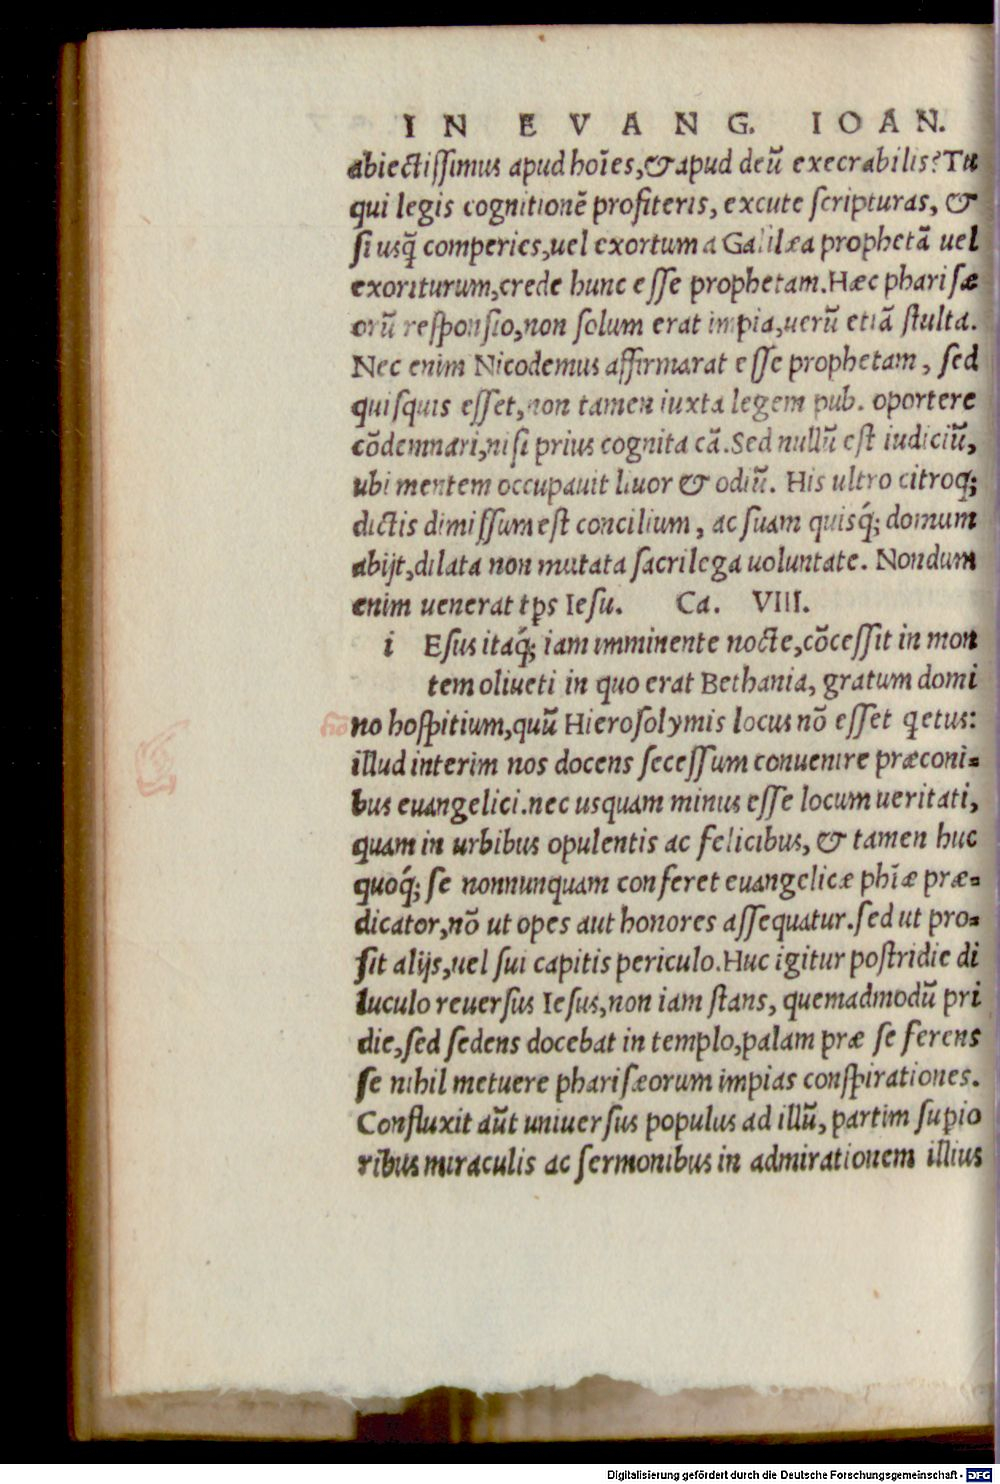 IN EVANG. IOAN.
abiectissimus apud hoīes,& apud deū execrabilis? Tu
qui legis cognitionē profiteris, excute scripturas, &
si usq̄ comperies,uel exortum a Galilæa prophetā uel
exoriturum,crede hunc esse prophetam.Hæc pharisæ
orū responsio,non solum erat impia,uerū etiā stulta.
Nec enim Nicodemus affirmarat esse prophetam, sed
quisquis esset,non tamen iuxta legem pub. oportere
cōdemnari,nisi prius cognita cā.Sed nullū est iudiciū,
ubi mentem occupauit liuor & odiū. His ultro citroq;
dictis dimissum est concilium, ac suam quisq́; domum
abijt,dilata non mutata sacrilega uoluntate. Nondum
enim uenerat tp̄s Iesu. Ca. VIII.
i Esus itaq́; iam imminente nocte,cōcessit in mon
tem oliueti in quo erat Bethania, gratum domi
no hospitium,quū Hierosolymis locus nō esset qetus:
illud interim nos docens secessum conuenire præconi=
bus euangelici.nec usquam minus esse locum ueritati,
quam in urbibus opulentis ac felicibus, & tamen huc
quoq́; se nonnunquam conferet euangelicæ phīæ præ=
dicator,nō ut opes aut honores assequatur.sed ut pro=
sit alijs,uel sui capitis periculo.Huc igitur postridie di
luculo reuersus Iesus,non iam stans, quemadmodū pri
die,sed sedens docebat in templo,palam præ se ferens
se nihil metuere pharisæorum impias conspirationes.
Confluxit aūt uniuersus populus ad illū, partim supio
ribus miraculis ac sermonibus in admirationem illius
Digitalisierung gefördert durch die Deutsche Forschungsgemeinschaft - DFG